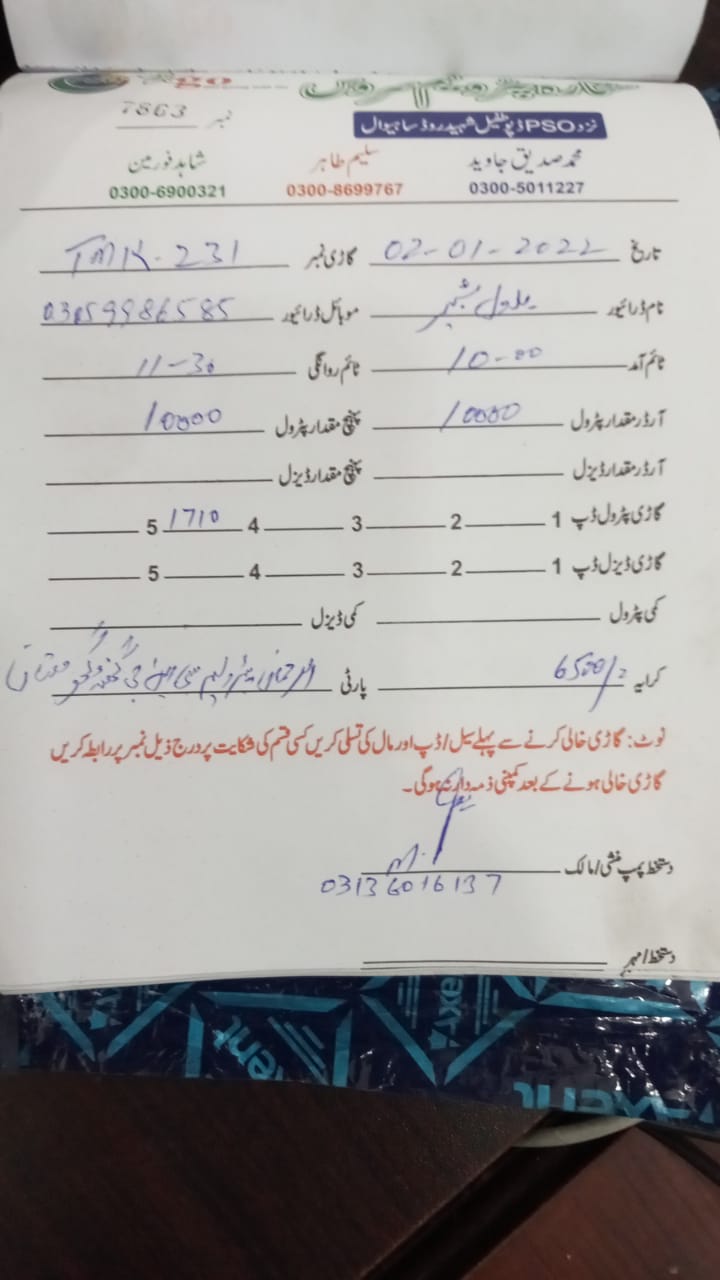 go
نمبر 7863
نزد PSO ڈپو طفیل شہید روڈ ساہیوال
محمد صدیق جاوید سلیم طاہر شاہد فورمین
0300-5011227 0300-8699767 0300-6900321
تاریخ 02-01-2022 گاڑی نمبر TMK-231
نام ڈرائیور موبائل ڈرائیور 03059986585
ٹائم آمد 10-00 ٹائم روانگی 11-30
آرڈر مقدار پٹرول 10000 پہنچ مقدار پٹرول 10000
آرڈر مقدار ڈیزل پہنچ مقدار ڈیزل
گاڑی پٹرول ڈپ 1 2 3 4 1710 5
گاڑی ڈیزل ڈپ 1 2 3 4 5
کمی پٹرول کمی ڈیزل
کرایہ 6500/= پارٹی
نوٹ: گاڑی خالی کرنے سے پہلے سیل/ڈپ اور مال کی تسلی کریں کسی قسم کی شکایت پر درج ذیل نمبر پر رابطہ کریں
گاڑی خالی ہونے کے بعد کمپنی ذمہ دار نہ ہوگی۔
دستخط پمپ منشی/مالک
03136016137
دستخط/مہر